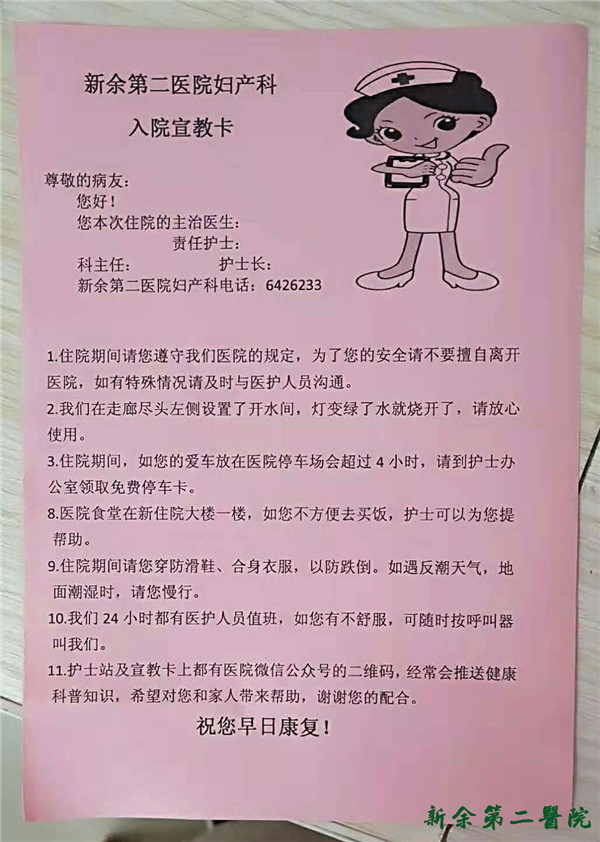 新余第二医院妇产科
入院宣教卡
尊敬的病友：
您好！
您本次住院的主治医生：
责任护士：
科主任： 护士长：
新余第二医院妇产科电话：6426233
1.住院期间请您遵守我们医院的规定，为了您的安全请不要擅自离开
医院，如有特殊情况请及时与医护人员沟通。
2.我们在走廊尽头左侧设置了开水间，灯变绿了水就烧开了，请放心
使用。
3.住院期间，如您的爱车放在医院停车场会超过 4 小时，请到护士办
公室领取免费停车卡。
8.医院食堂在新住院大楼一楼，如您不方便去买饭，护士可以为您提
帮助。
9.住院期间请您穿防滑鞋、合身衣服，以防跌倒。如遇反潮天气，地
面潮湿时，请您慢行。
10.我们 24 小时都有医护人员值班，如您有不舒服，可随时按呼叫器
叫我们。
11.护士站及宣教卡上都有医院微信公众号的二维码，经常会推送健康
科普知识，希望对您和家人带来帮助，谢谢您的配合。
祝您早日康复！
新余第二醫院